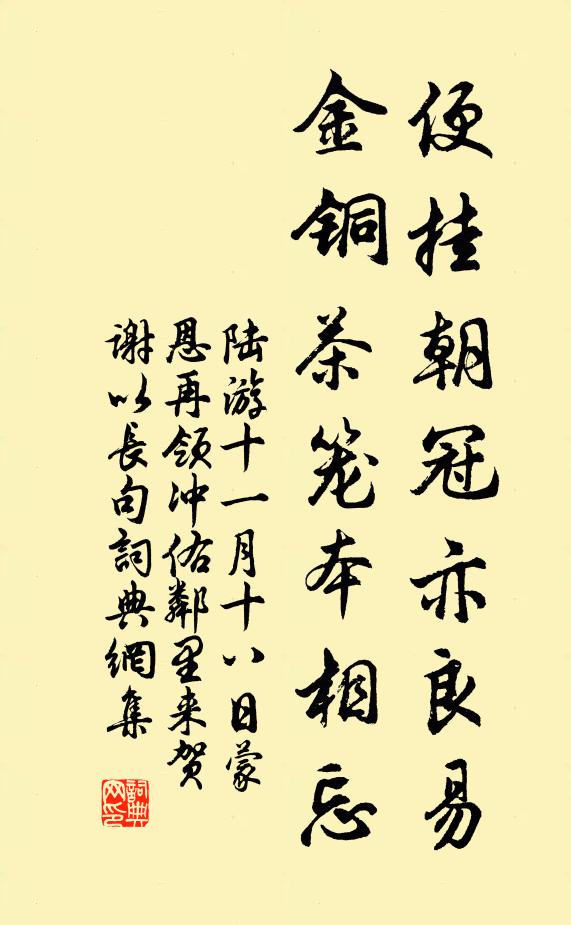 便挂朝冠亦良易
金铜茶笼本相忘
陆游十一月十八日蒙
恩再领冲佑鄰里来贺
谢以長句詞典網集
詞典
网印